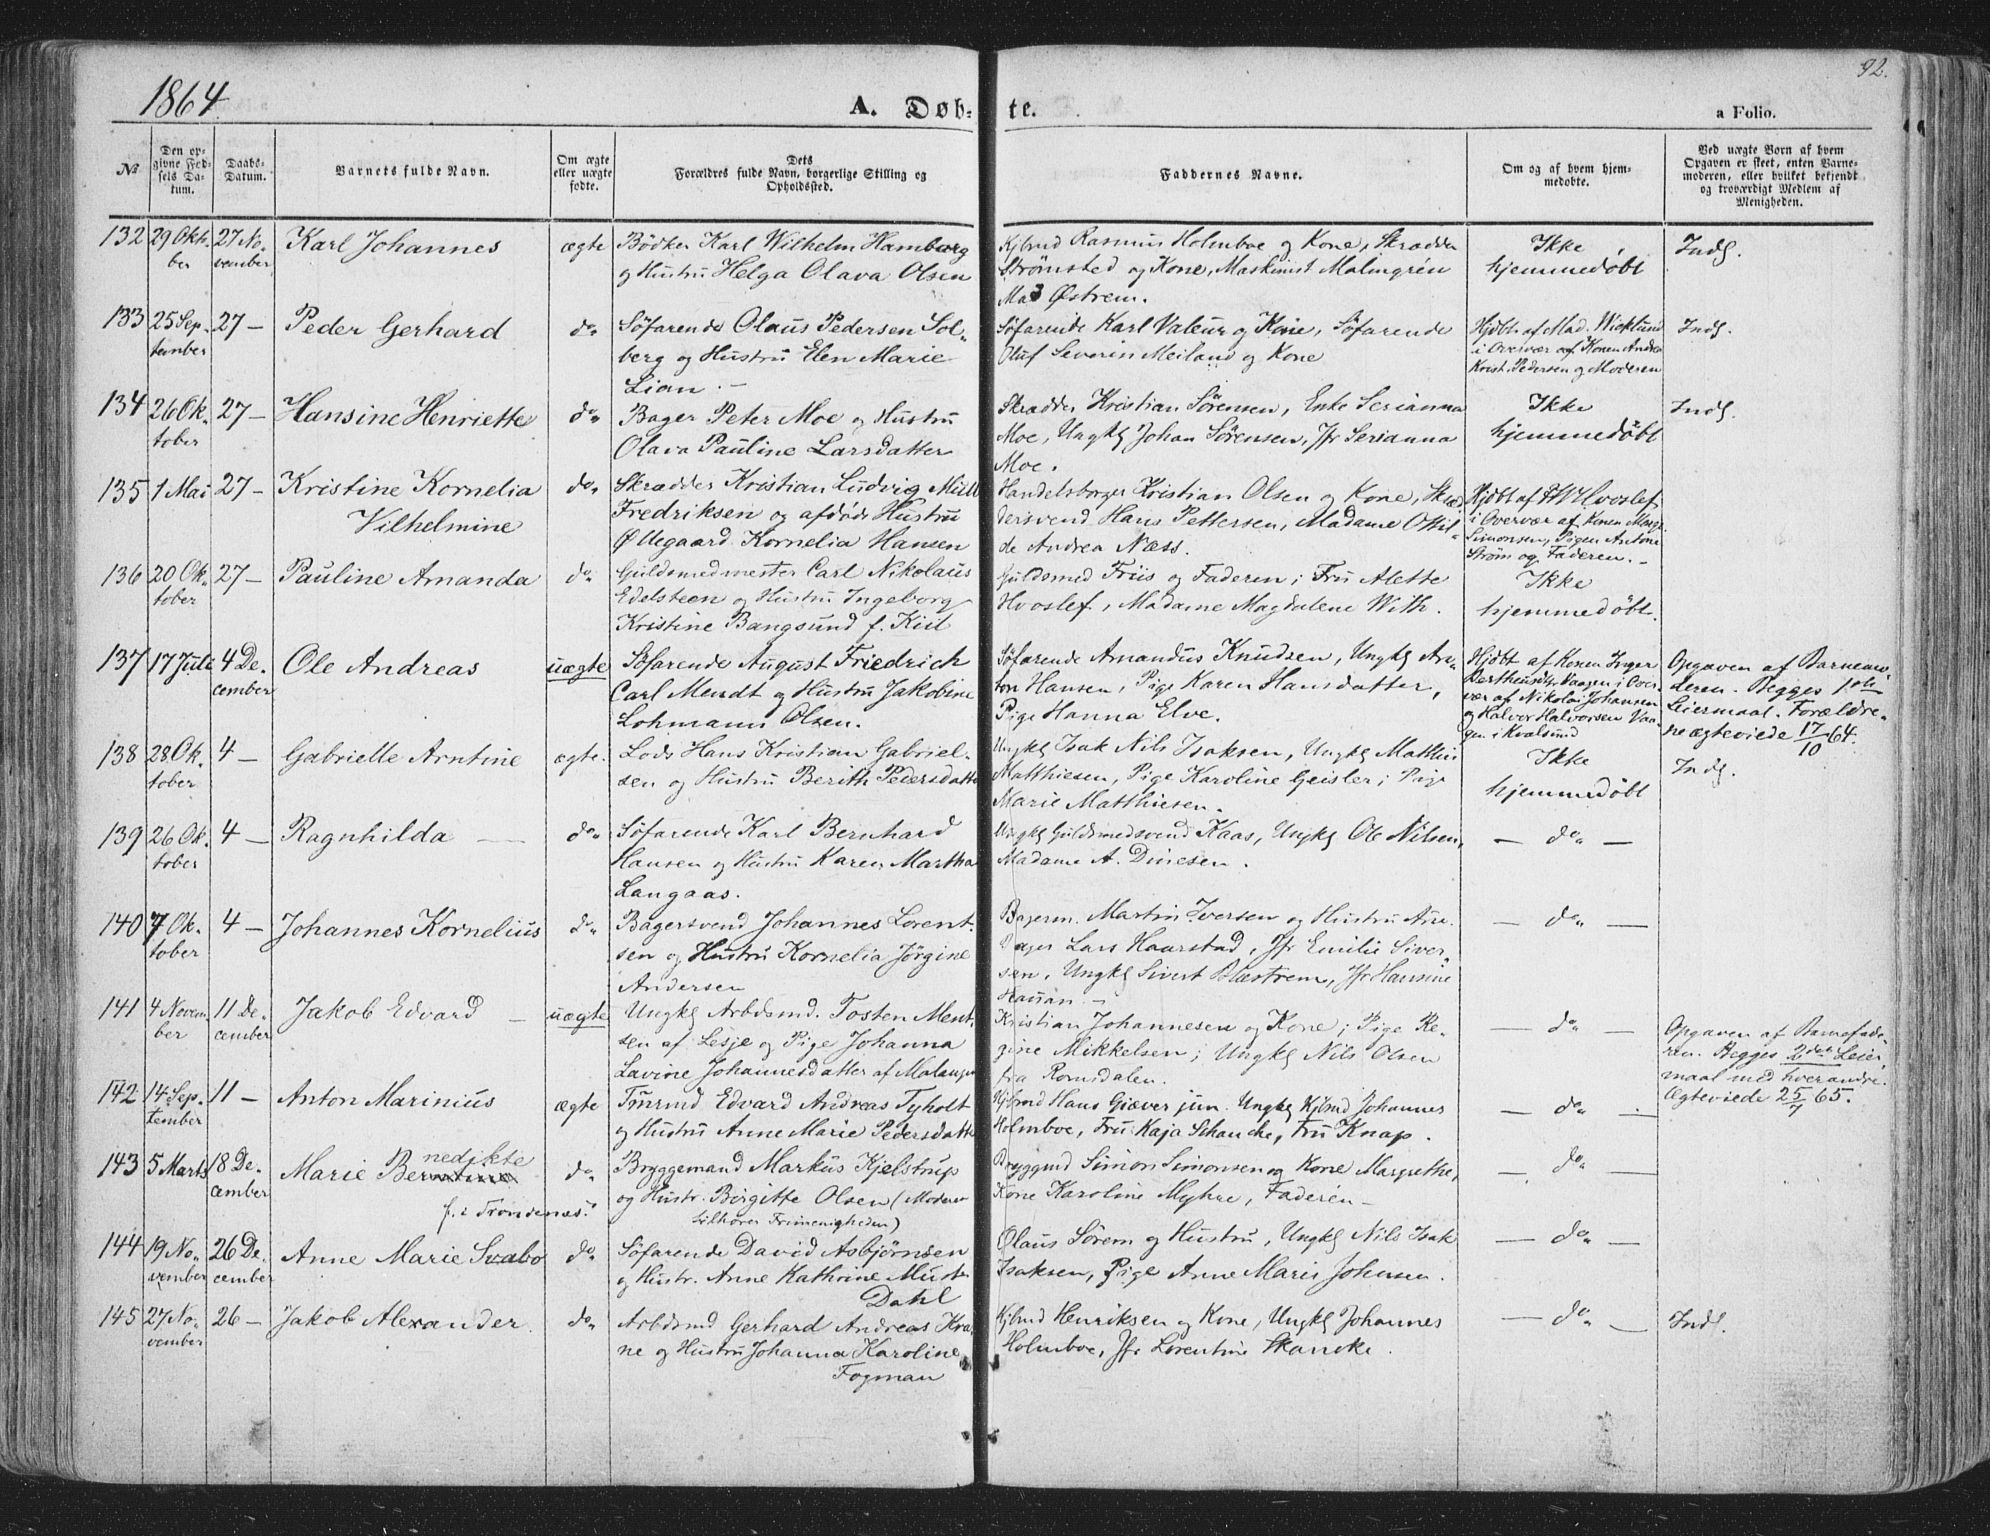 1864.
A. Døb-
te.
a Folio.
92.
No
Den op-
givne Fød-
sels Da-
tum.
Daabs-
Datum.
Barnets fulde Navn.
Om ægte
eller uægte
fødte.
Dets
Forældres fulde Navn, borgerlige Stilling og
Opholdssted.
Faddernes Navne.
Om og af hvem hjem-
medøbte.
Ved uægte Børn af hvem
Opgaven er skeet, enten Barne-
moderen, eller hvilket bekjendt
og troværdigt Medlem af
Menigheden.
132 29 Okto-
ber
27 No-
vember
Karl Johannes
ægte
Bødker Karl Wilhelm Hamberg
og Hustru Helga Olava Olsen
Kjbmd Rasmus Holmboe og Kone, Skrædder
Strømsted og Kone, Maskinist Malmgrén
Østrem.
Ikke
hjemmedøbt
Indl.
133 25 Sep-
tember
27 —
Peder Gerhard
do
Söfarende Olaus Pedersen Sol-
berg og Hustru Elen Marie
Lian. —
Söfarende Karl Valeur og Kone, Söfarende
Oluf Severin Meiland og Kone
Hjdbt af Mad. Wicklund
i Overvær af Konen Andrea
Krist. Pedersen og Moderen
Indl.
134 26 Ok-
tober
27 —
Hansine Henriette
do
Bager Peter Moe og Hustru
Olava Pauline Larsdatter
Skrædder Kristian Sørensen, Enke Serianna
Moe, Ungkl Johan Sörensen, Jfr Serianna
Moe.
Ikke
hjemmedöbt
Indl.
135 1 Mai
27 —
Kristine Kornelia
Vilhelmine
do
Skrædder Kristian Ludvig
Fredriksen og afdøde Hustru
Øllegaard Kornelia Hansen
Handelsborger Kristian Olsen og Kone, Skræd-
dersvend Hans Pettersen, Madame Ottil-
de Andrea Næss.
Hjdbt af Hvoslef
i Overvær af Konen
Simonsen, Pigen Antone
Strøm og Faderen. —
136 20 Ok-
tober
27 —
Pauline Amanda
do
Guldsmedmester Carl Nikolaus
Edelsteen og Hustru Ingeborg
Kristine Bangsund f. Kiil
Guldsmed Friis og Faderen; Fru Alette
Hvoslef, Madame Magdalene With.
Ikke
hjemmedøbt.
137 17 Juli
4 De-
cember
Ole Andreas
uægte
Söfarende August Friedrich
Carl Mendt og Hustru Jakobine
Lohmann Olsen.
Söfarende Amandus Knudsen, Ungkl An-
ton Hansen, Pige Karen Hansdatter,
Pige Hanna Elve.
Hjdbt af Konen Inger
Vaagen i Over-
vær af Nikolai Johansen
og Halvor Halvorsen Vaa-
gen i Kvalsund
Opgaven af Barnemo-
deren. Begges 1ste
Leiermaal. Forældre-
ne ægteviede 17/10 64.
138 28 Ok-
tober
4 —
Gabrielle Arntine
ægte.
Lods Hans Kristian Gabriel-
sen og Hustru Berith Pedersdatter
Ungkl Isak Nils Isaksen, Ungkl Matthis
Matthiesen, Pige Karoline Geisler; Pige
Marie Matthiesen.
Ikke
hjemmedøbt
Indl.
139 26 Ok-
tober
4 —
Ragnhilda —
do
Söfarende Karl Bernhard
Hansen og Hustru Karen Martha
Langaas.
Ungkl Guldsmedsvend Kaas, Ungkl Ole Nilsen,
Madame A. Dinesen.
— do —
140 7 Ok-
tober
4 —
Johannes Kornelius
do
Bagersvend Johannes Lorent-
sen og Hustru Kornelia Jørgine
Andersen
Bagerm. Martin Iversen og Hustru Ane.
Bager Lars Haarstad, Jfr Emilie Siver-
sen, Ungkl Sivert Blæstrem, Jfr Hansine
Hassan. —
— do —
141 4 Novem-
ber
11 De-
cember
Jakob Edvard —
uægte
Ungkl Arbdsmd. Tosten Ment-
sen af Lesje og Pige Johanna
Lavine Johannesdatter af Malangen
Kristian Johannesen og Kone; Pige Re-
gine Mikkelsen; Ungkl Nils Olsen
fra Romsdalen.
— do —
Opgaven af Barnefade-
ren. Begges 2det Leier
maal med hverandre.
Ægteviede 25/7 65.
142 14 Sep-
tember
11 —
Anton Marinius
ægte
Tönrmd Edvard Andreas Tyholt
og Hustru Anne Marie Pedersdatter
Kjbmd Hans Giæver jun. Ungkl Kjbmd Johannes
Holmboe, Fru Kaja Schancke, Fru Knap.
— do —
143 5 Marts
18 De-
cember
nedikte
Marie Berntine
f. i Trondenes.
do
Bryggemand Markus Kjelstrup
og Hustr. Birgitte Olsen (Moderen
tilhører Frimenigheden)
Bryggmd Simon Simonsen og Kone Margrethe,
Kone Karoline Myhre, Faderen —
— do —
144 19 No-
vember
26 De-
cember
Anne Marie Svabo
do
Söfarende David Asbjørnsen
og Hustr. Anne Kathrine Must-
Dahl
Olaus Sörem og Hustru, Ungkl Nils Isak
Isaksen, Pige Anne Marie Johnsen.
— do —
145 27 No-
vember
26 —
Jakob Alexander.
do
Arbdsmd Gerhard Andreas Kra-
ne og Hustru Johanna Karoline
Fogman
Kjbmd Henriksen og Kone, Ungkl Johannes
Holmboe, Jfr Lorentine Skancke.
— do —
Indl.